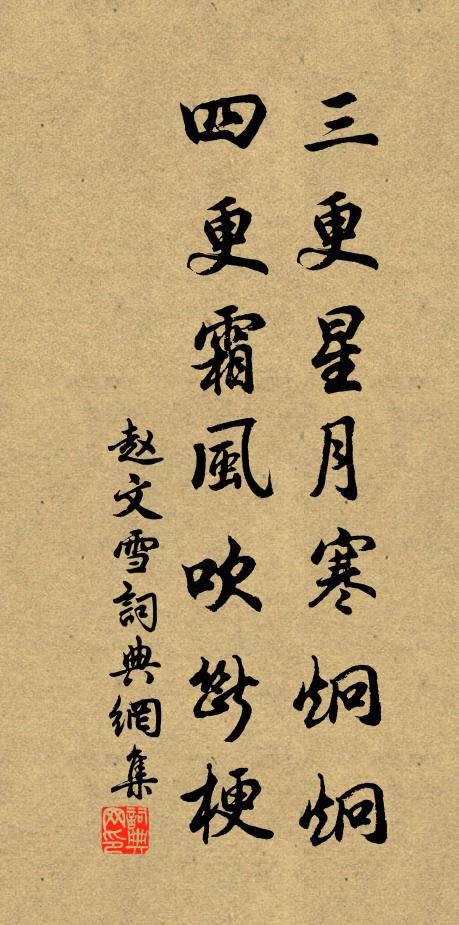 三更星月寒炯炯
四更霜風吹斷梗
赵文雪詞典網集
詞典网印